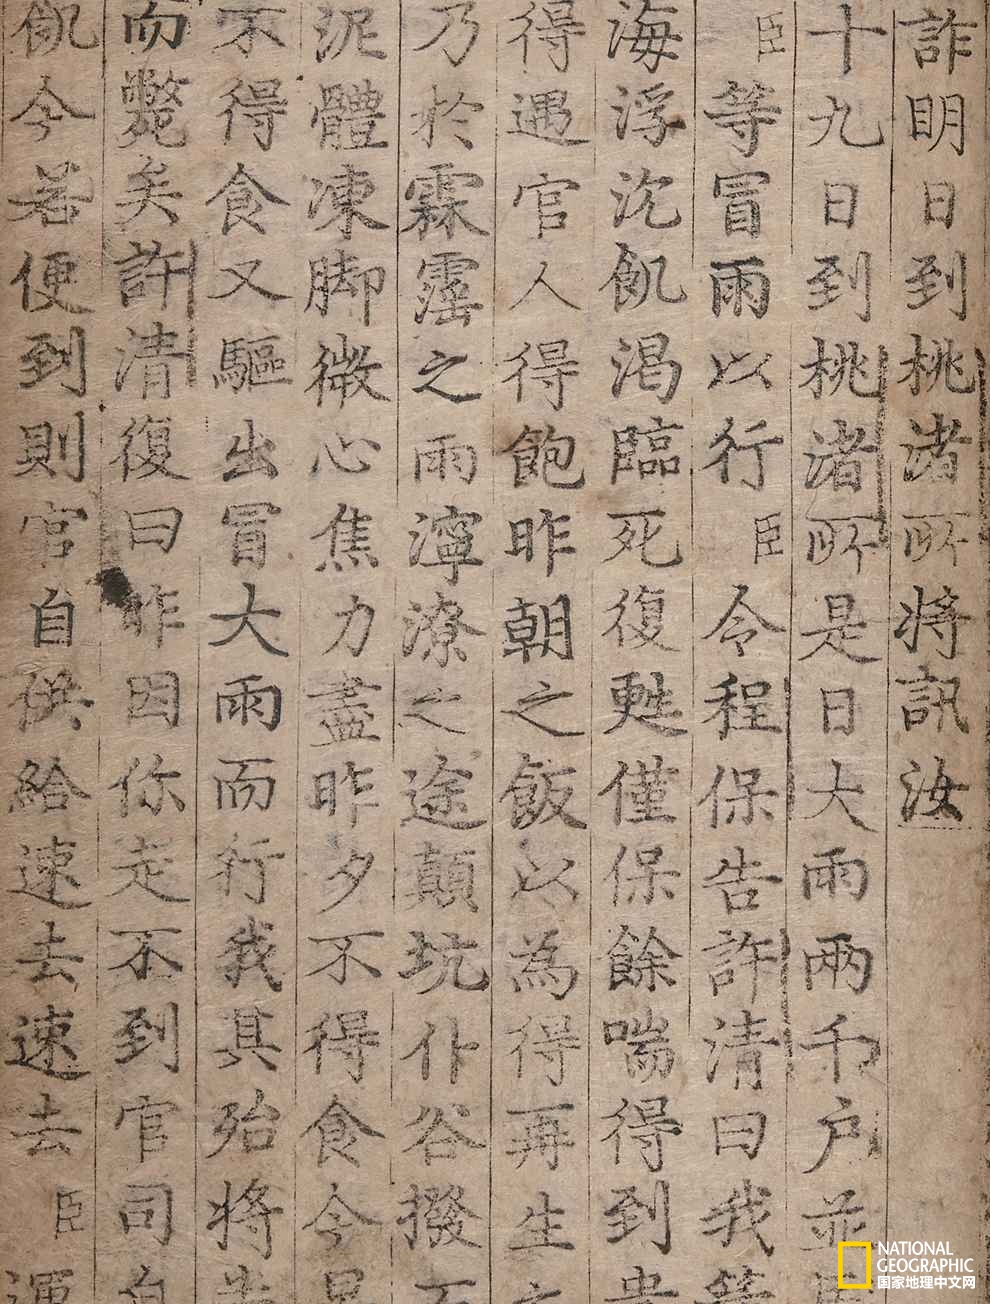 詐明日到桃渚所將訊汝
十九日到桃渚所是日大雨兩千戶並
臣等冒雨以行臣令程保告許清曰我等
海浮沉飢渴臨死復甦僅保餘喘得到貴
得遇官人得飽昨朝之飯以為得再生之
乃於霖霪之雨濘潦之途顛坑仆谷撥
泥體凍脚微心焦力盡昨夕不得食今
不得食又驅出冒大雨而行我其殆將
而斃矣許清復曰昨因你走不到官司自
飢今若便到則官自供給速去速去臣運
NATIONAL
GEOGRAPHIC
国家地理中文网